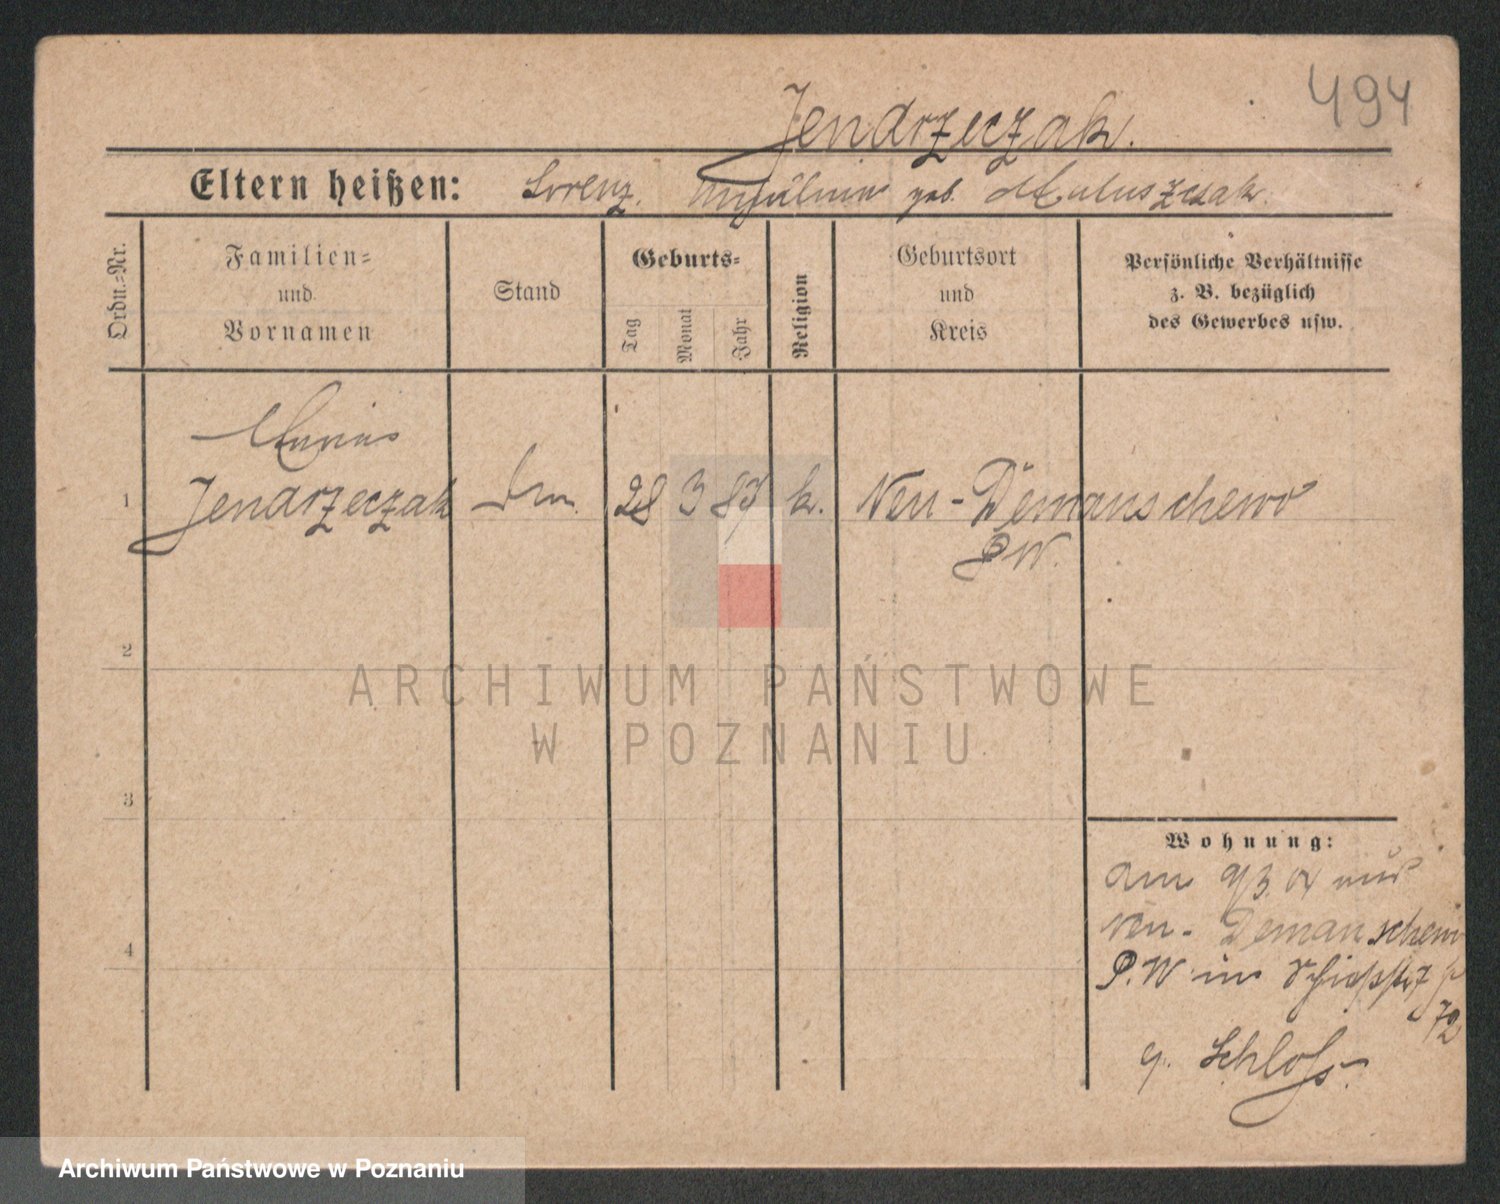 494
Jendrzeczak.
Eltern heißen: Lorenz, geb.
Ordn.=Nr.
Familien=
und
Vornamen
Stand
Geburts=
Tag
Monat
Jahr
Religion
Geburtsort
und
Kreis
Persönliche Verhältnisse
z. B. bezüglich
des Gewerbes usw.
1
Jendrzeczak 28 3 87 k. Neu-Demanschewo
P W.
2
ARCHIWUM PAŃSTWOWE
W POZNANIU
3
Wohnung:
am 9/3. 04 aus
Neu-Demanschewo
4
P. W in 7
72
Schloss.
Archiwum Państwowe w Poznaniu